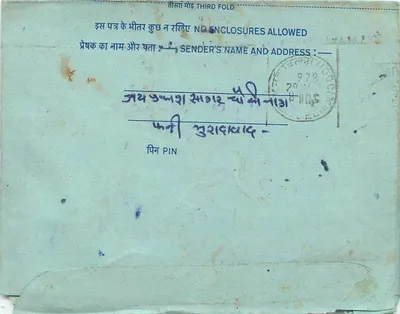 तीसरा मोड़ THIRD FOLD
इस पत्र के भीतर कुछ न रखिए NO ENCLOSURES ALLOWED
प्रेषक का नाम और पता :— SENDER'S NAME AND ADDRESS :—
जय प्रकाश सागर चौकी
मुरादाबाद –
पिन PIN